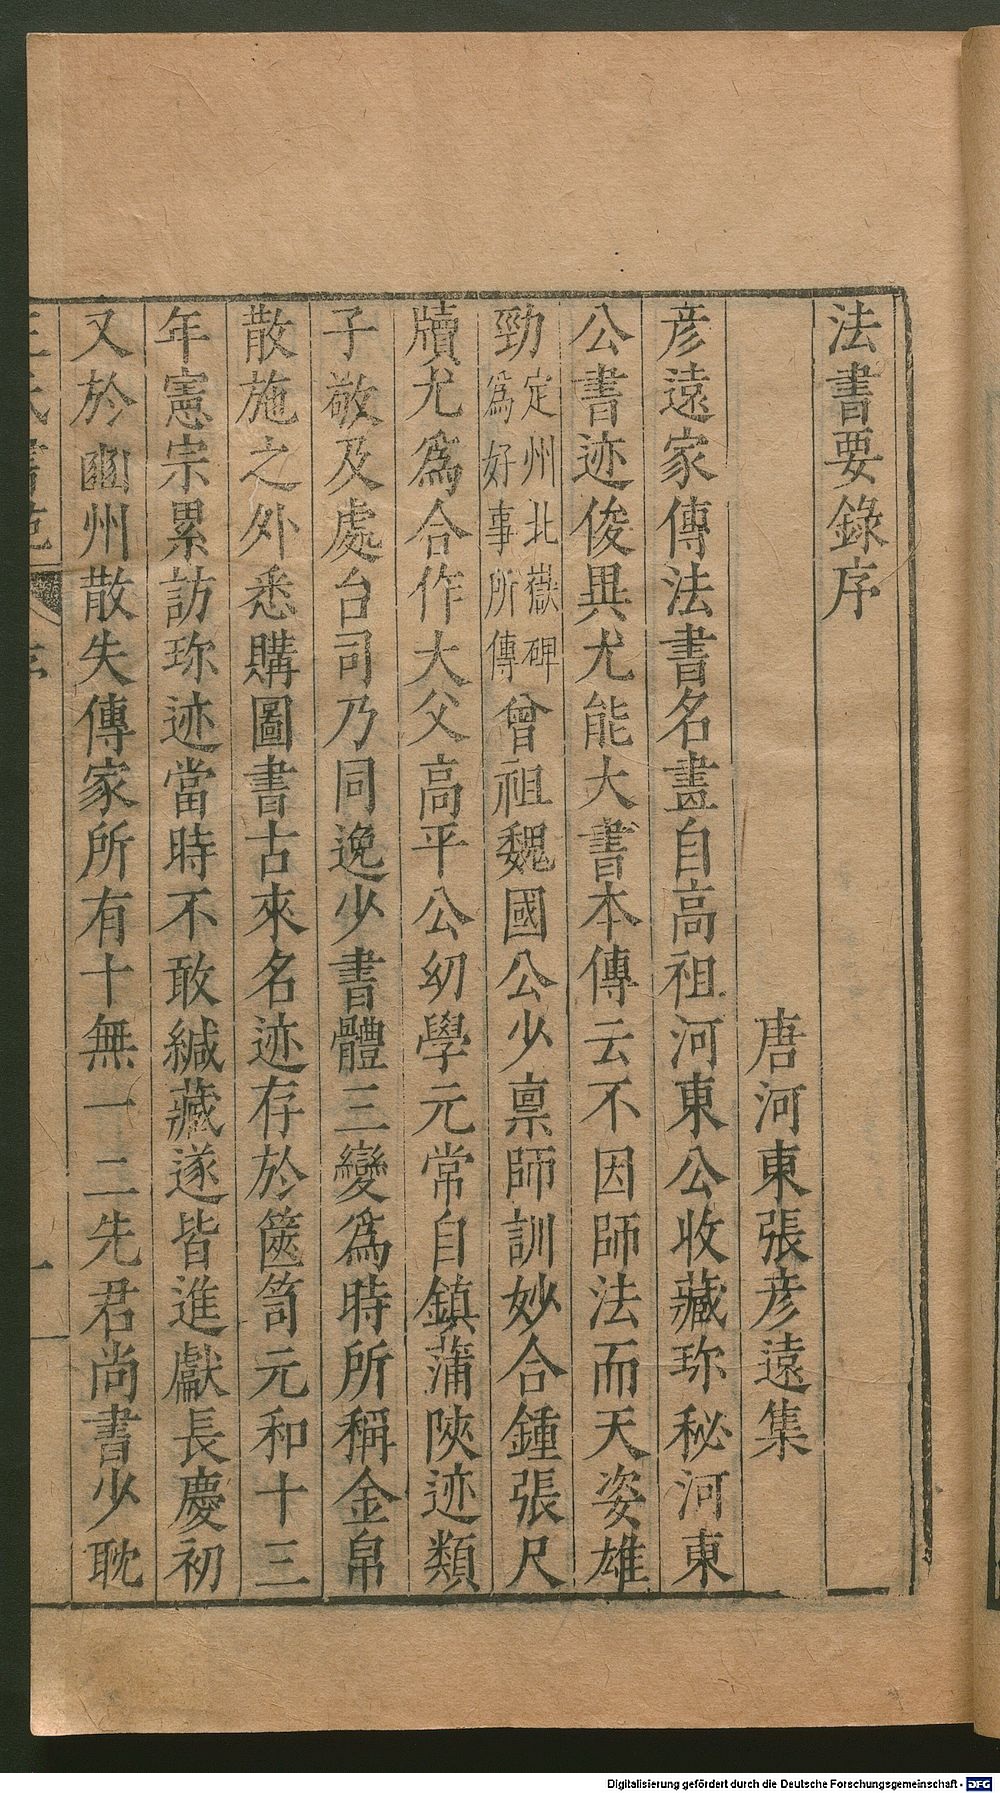 法書要錄序
唐河東張彥遠集
彥遠家傳法書名畫自高祖河東公收藏珎秘河東
公書迹俊異尤能大書本傳云不因師法而天姿雄
勁定州北嶽碑為好事所傳曾祖魏國公少禀師訓妙合鍾張尺
牘尤為合作大父高平公幼學元常自鎮蒲陝迹類
子敬及處台司乃同逸少書體三變為時所稱金帛
散施之外悉購圖書古來名迹存於篋笥元和十三
年憲宗累訪珎迹當時不敢緘藏遂皆進獻長慶初
又於豳州散失傳家所有十無一二先君尚書少耽
王氏書苑
序
一
Digitalisierung gefördert durch die Deutsche Forschungsgemeinschaft - DFG